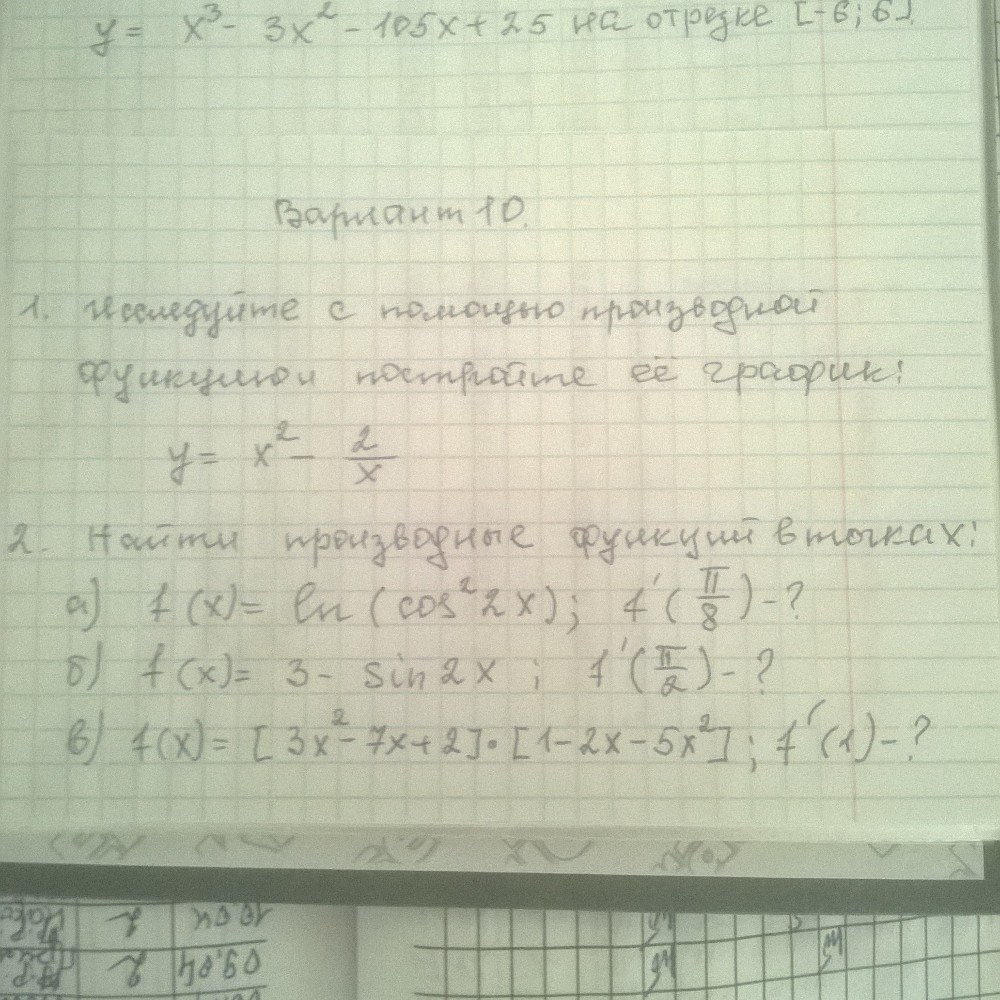 y = x³ - 3x² - 105x + 25 на отрезке [-6; 6].
Вариант 10.
1. Исследуйте с помощью производной
функцию и постройте её график:
y = x² - 2/x
2. Найти производные функций в точках:
а) f(x) = ln(cos²2x); f'(π/8) - ?
б) f(x) = 3 - sin2x; f'(π/2) - ?
в) f(x) = [3x² - 7x + 2]·[1 - 2x - 5x²]; f'(1) - ?